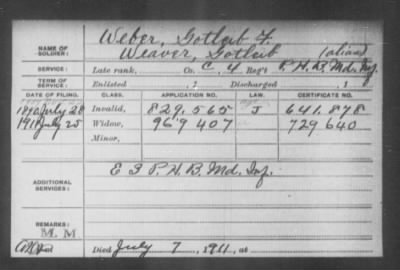 Weber, Gotleib F.
NAME OF SOLDIER: Weaver, Gotleib (alias)
SERVICE: Late rank, Co. C, 4 Reg't P. H. B. Md. Inf.
TERM OF SERVICE: Enlisted , 1 Discharged , 1
DATE OF FILING. CLASS. APPLICATION NO. LAW. CERTIFICATE NO.
1890 July 28 Invalid, 829.565 J 641.878
1911 July 25 Widow, 969 407 729 640
Minor,
ADDITIONAL SERVICES: E 3 P. H. B. Md. Inf.
REMARKS: M. M
Died July 7, 1911, at